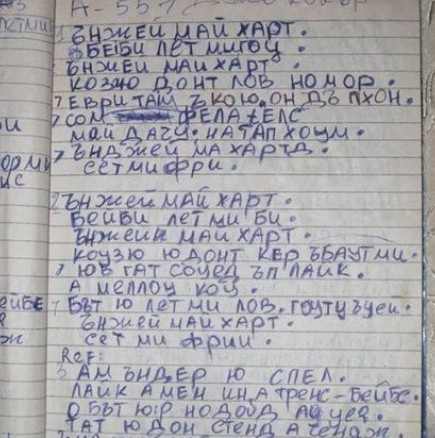 А-55
ЪНЖЕЙ МАЙ ХАРТ.
БЕЙБИ ЛЕТ МИ ГОЦ.
ЪНЖЕИ МАИ ХАРТ
КОЗЮ ДОНТ ЛОВ НО МОР.
ЕВРИ ТАЙМ Ъ КОЮ. ОН ДЪ ПХОН.
СОМ ФЕЛА ЕЛС
МАЙ ДАГЧ. НАТ АП ХОУМ.
ЪНДЖЕЙ МА ХАРТД.
СЕТ МИ ФРИ.
2 ЪНЖЕЙ МАЙ ХАРТ.
БЕЙВИ ЛЕТ МИ БИ.
ЪНЖЕИН МАЙ ХАРТ.
КОУЗЮ Ю ДОНТ КЕР ЪБАУТ МИ.
ЮВ ГАТ СОЦЕД ЪП ЛАИК.
А МЕЛЛОЦ КОУ.
БЪТ Ю ЛЕТ МИ ЛОВ. ГОУТЦ ЪУЕЙ.
ЪНЖЕЙ МАИ ХАРТ.
СЕТ МИ ФРИИ.
Ref:
АМ ЪНДЕР Ю СПЕЛ.
ЛАЙК А МЕН ИН А ТРЕНС-БЕЙБЕ.
О БЪТ Ю:Р
ТАТ Ю ДОН СТЕНД А